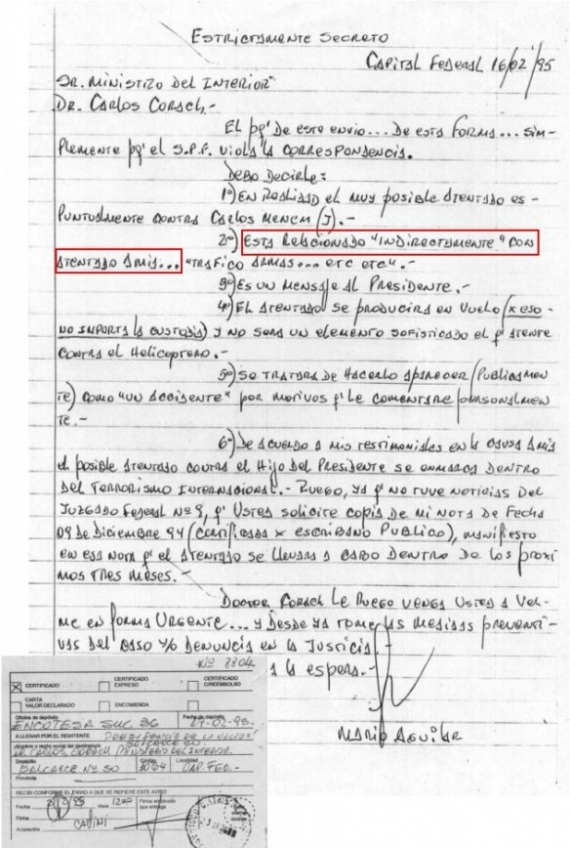 ESTRICTAMENTE SECRETO
CAPITAL FEDERAL 16/02/95
SR. MINISTRO DEL INTERIOR
DR. CARLOS CORACH.-
EL pq' DE ESTE ENVIO... DE ESTA FORMA... SIM-
PLEMENTE pq' EL S.P.F. VIOLA LA CORRESPONDENCIA.
DEBO DECIRLE:
1º) EN REALIDAD EL MUY POSIBLE ATENTADO ES -
PUNTUALMENTE CONTRA CARLOS MENEM (J).-
2º) ESTA RELACIONADO "INDIRECTAMENTE" CON
ATENTADO AMIA... "TRAFICO ARMAS... ETC ETC".-
3º) ES UN MENSAJE AL PRESIDENTE.-
4º) EL ATENTADO SE PRODUCIRA EN VUELO (x ESO
NO IMPORTA LA CUSTODIA) Y NO SERA UN ELEMENTO SOFISTICADO EL q' ATENTE
CONTRA EL HELICOPTERO.-
5º) SE TRATARA DE HACERLO APARECER (PUBLICAMEN
TE) COMO "UN ACCIDENTE" POR MOTIVOS q' LE COMENTARE PERSONALMEN
TE.-
6º) DE ACUERDO A MIS TESTIMONIALES EN LA CAUSA AMIA
EL POSIBLE ATENTADO CONTRA EL HIJO DEL PRESIDENTE SE ENMARCA DENTRO
DEL TERRORISMO INTERNACIONAL.- RUEGO, YA q' NO TUVE NOTICIAS DEL
JUZGADO FEDERAL Nº 9, q' USTED SOLICITE COPIA DE MI NOTA DE FECHA
09 DE DICIEMBRE 94 (CERTIFICADA x ESCRIBANO PUBLICO), MANIFIESTO
EN ESA NOTA q' EL ATENTADO SE LLEVARA A CABO DENTRO DE LOS PROXI
MOS TRES MESES.-
DOCTOR CORACH LE RUEGO VENGA USTED A VER-
ME EN FORMA URGENTE... Y DESDE YA TOME LAS MEDIDAS PREVENTI-
VAS DEL CASO Y/O DENUNCIA EN LA JUSTICIA.
A LA ESPERA.-
MARIO AGUILAR
Nº 3304
CERTIFICADO
CERTIFICADO EXPRESO
CERTIFICADO C/REEMBOLSO
CARTA VALOR DECLARADO
ENCOMIENDA
Oficina de depósito
Fecha de depósito
ENCOTESA SUC 36
17-02-95.
A LLENAR POR EL REMITENTE
DR CARLOS CORACH MINISTRO DEL INTERIOR
BALCARCE Nº 50
CAP. FED.-
Provincia
RECIBI CONFORME EL ENVIO A QUE SE REFIERE ESTE AVISO
Fecha
Hora
Firma
Aclaración